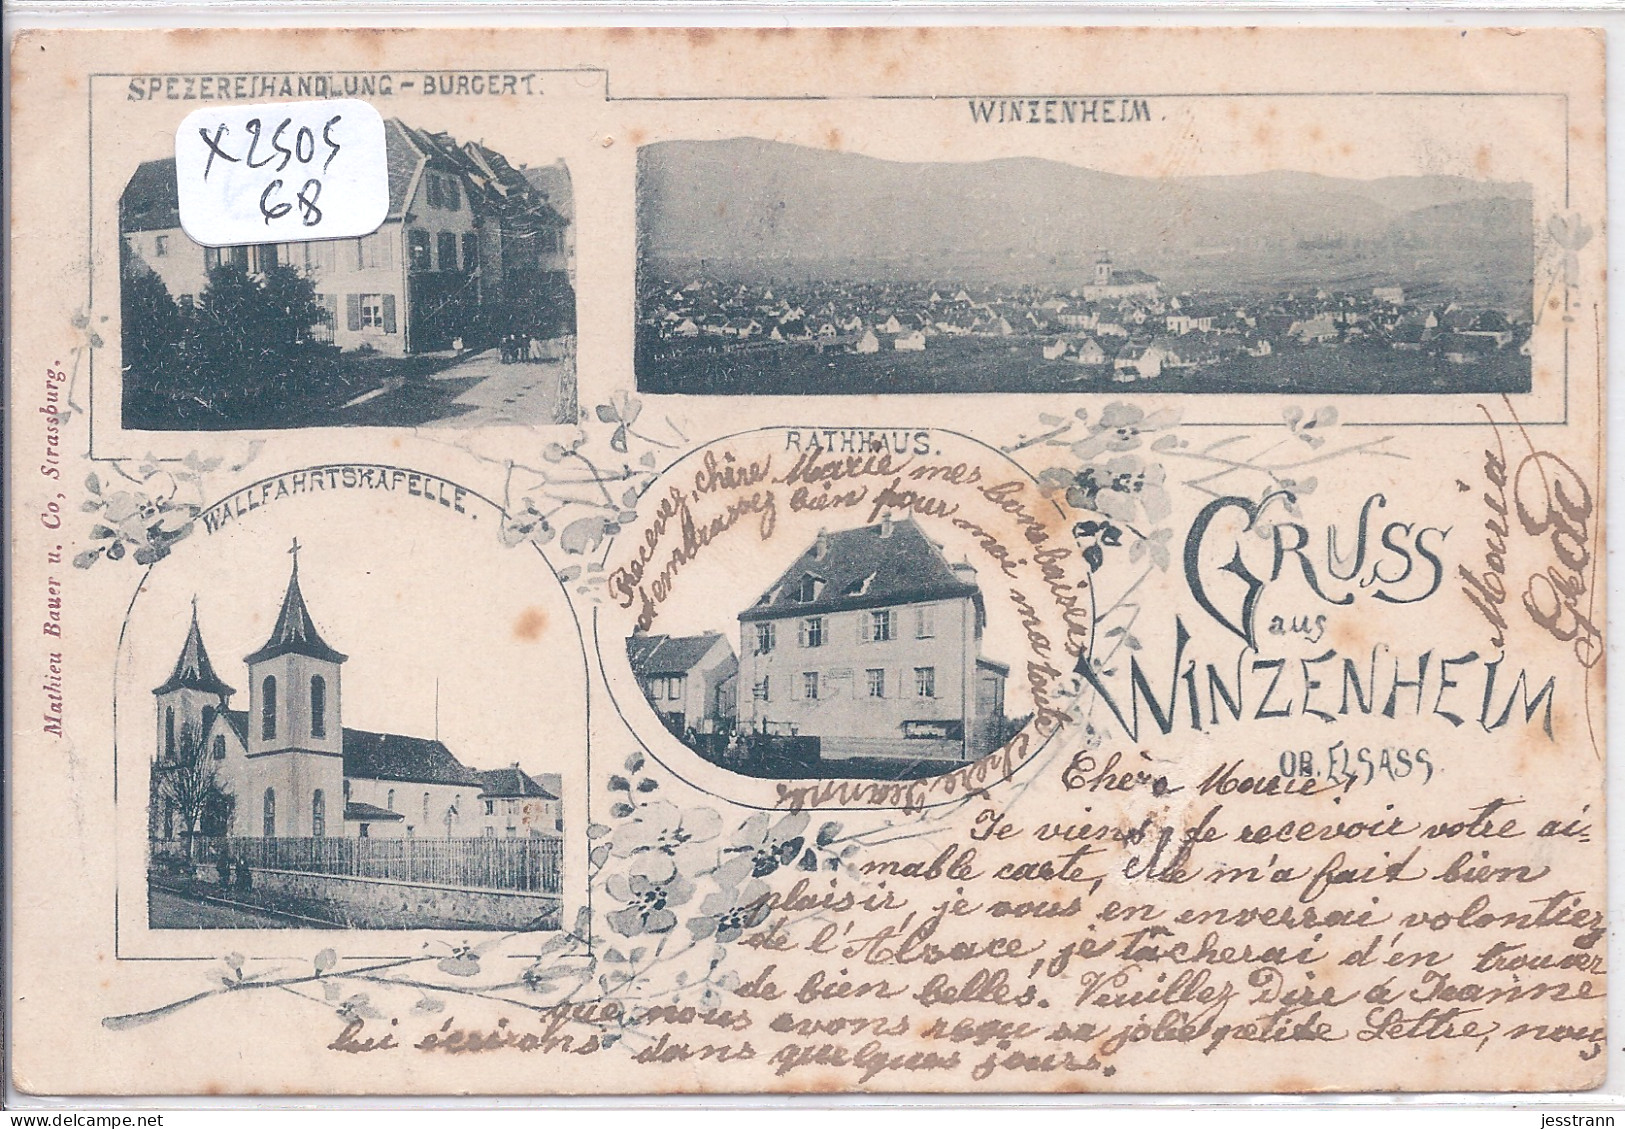 SPEZEREIHANDLUNG – BURGERT.
WINZENHEIM.
X2505
68
RATHHAUS.
WALLFAHRTSKAPELLE.
Mathieu Bauer u. Co, Strassburg.
GRUSS
aus
WINZENHEIM
OB. ELSASS.
Recevez, chère Marie mes bons baisers
et embrassez bien pour moi ma toute
chère Jeanne
Maria
Chère Marie,
Je viens de recevoir votre ai-
mable carte, elle m'a fait bien
plaisir, je vous en enverrai volontiez
de l'Alsace, je tâcherai d'en trouver
de bien belles. Veuillez Dire à Jeanne
que nous avons reçu sa jolie petite Lettre, nous
lui écrirons dans quelques jours.
jesstrann